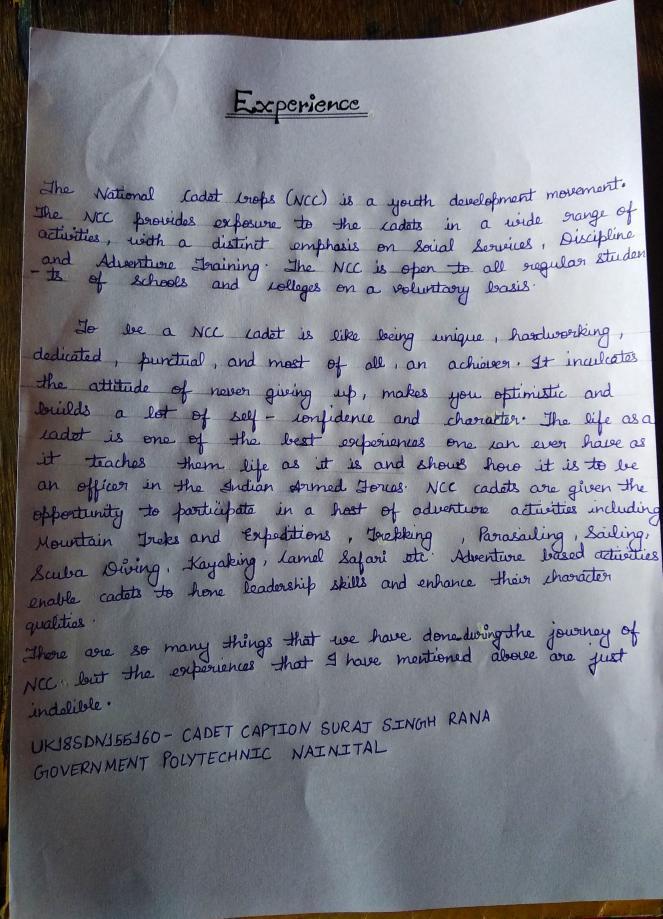 Experience
The National Cadet Crops (NCC) is a youth development movement.
The NCC provides exposure to the cadets in a wide range of
activities, with a distinct emphasis on Social Services, Discipline
and Adventure Training. The NCC is open to all regular studen
-ts of schools and colleges on a voluntary basis.
To be a NCC cadet is like being unique, hardworking,
dedicated, punctual, and most of all, an achiever. It inculcates
the attitude of never giving up, makes you optimistic and
builds a lot of self-confidence and character. The life as a
cadet is one of the best experiences one can ever have as
it teaches them life as it is and shows how it is to be
an officer in the Indian Armed Forces. NCC cadets are given the
opportunity to participate in a host of adventure activities including
Mountain Treks and Expeditions, Trekking, Parasailing, Sailing,
Scuba Diving, Kayaking, Camel Safari etc. Adventure based activities
enable cadets to hone leadership skills and enhance their character
qualities.
There are so many things that we have done during the journey of
NCC but the experiences that I have mentioned above are just
indelible.
UK18SDN155160- CADET CAPTION SURAJ SINGH RANA
GOVERNMENT POLYTECHNIC NAINITAL